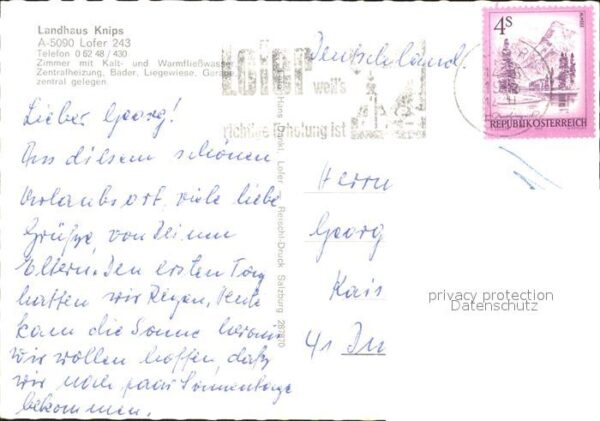 Landhaus Knips
A-5090 Lofer 243
Telefon 0 62 48 / 430
Zimmer mit Kalt- und Warmfließwasser
Zentralheizung, Bäder, Liegewiese,
zentral gelegen.
Lofer
weil's
richtige Erholung ist
Deutschland.
4S
REPUBLIK ÖSTERREICH
Lieber Georg!
Aus diesem schönen
Urlaubsort viele liebe
Grüße, von Deinen
Eltern. Den ersten Tag
hatten wir Regen, heute
kam die Sonne heraus
wir wollen hoffen, daß
wir noch paar Sonnentage
bekommen.
Lofer — Reischl-Druck Salzburg
Herrn
Georg
Kais
41
privacy protection
Datenschutz